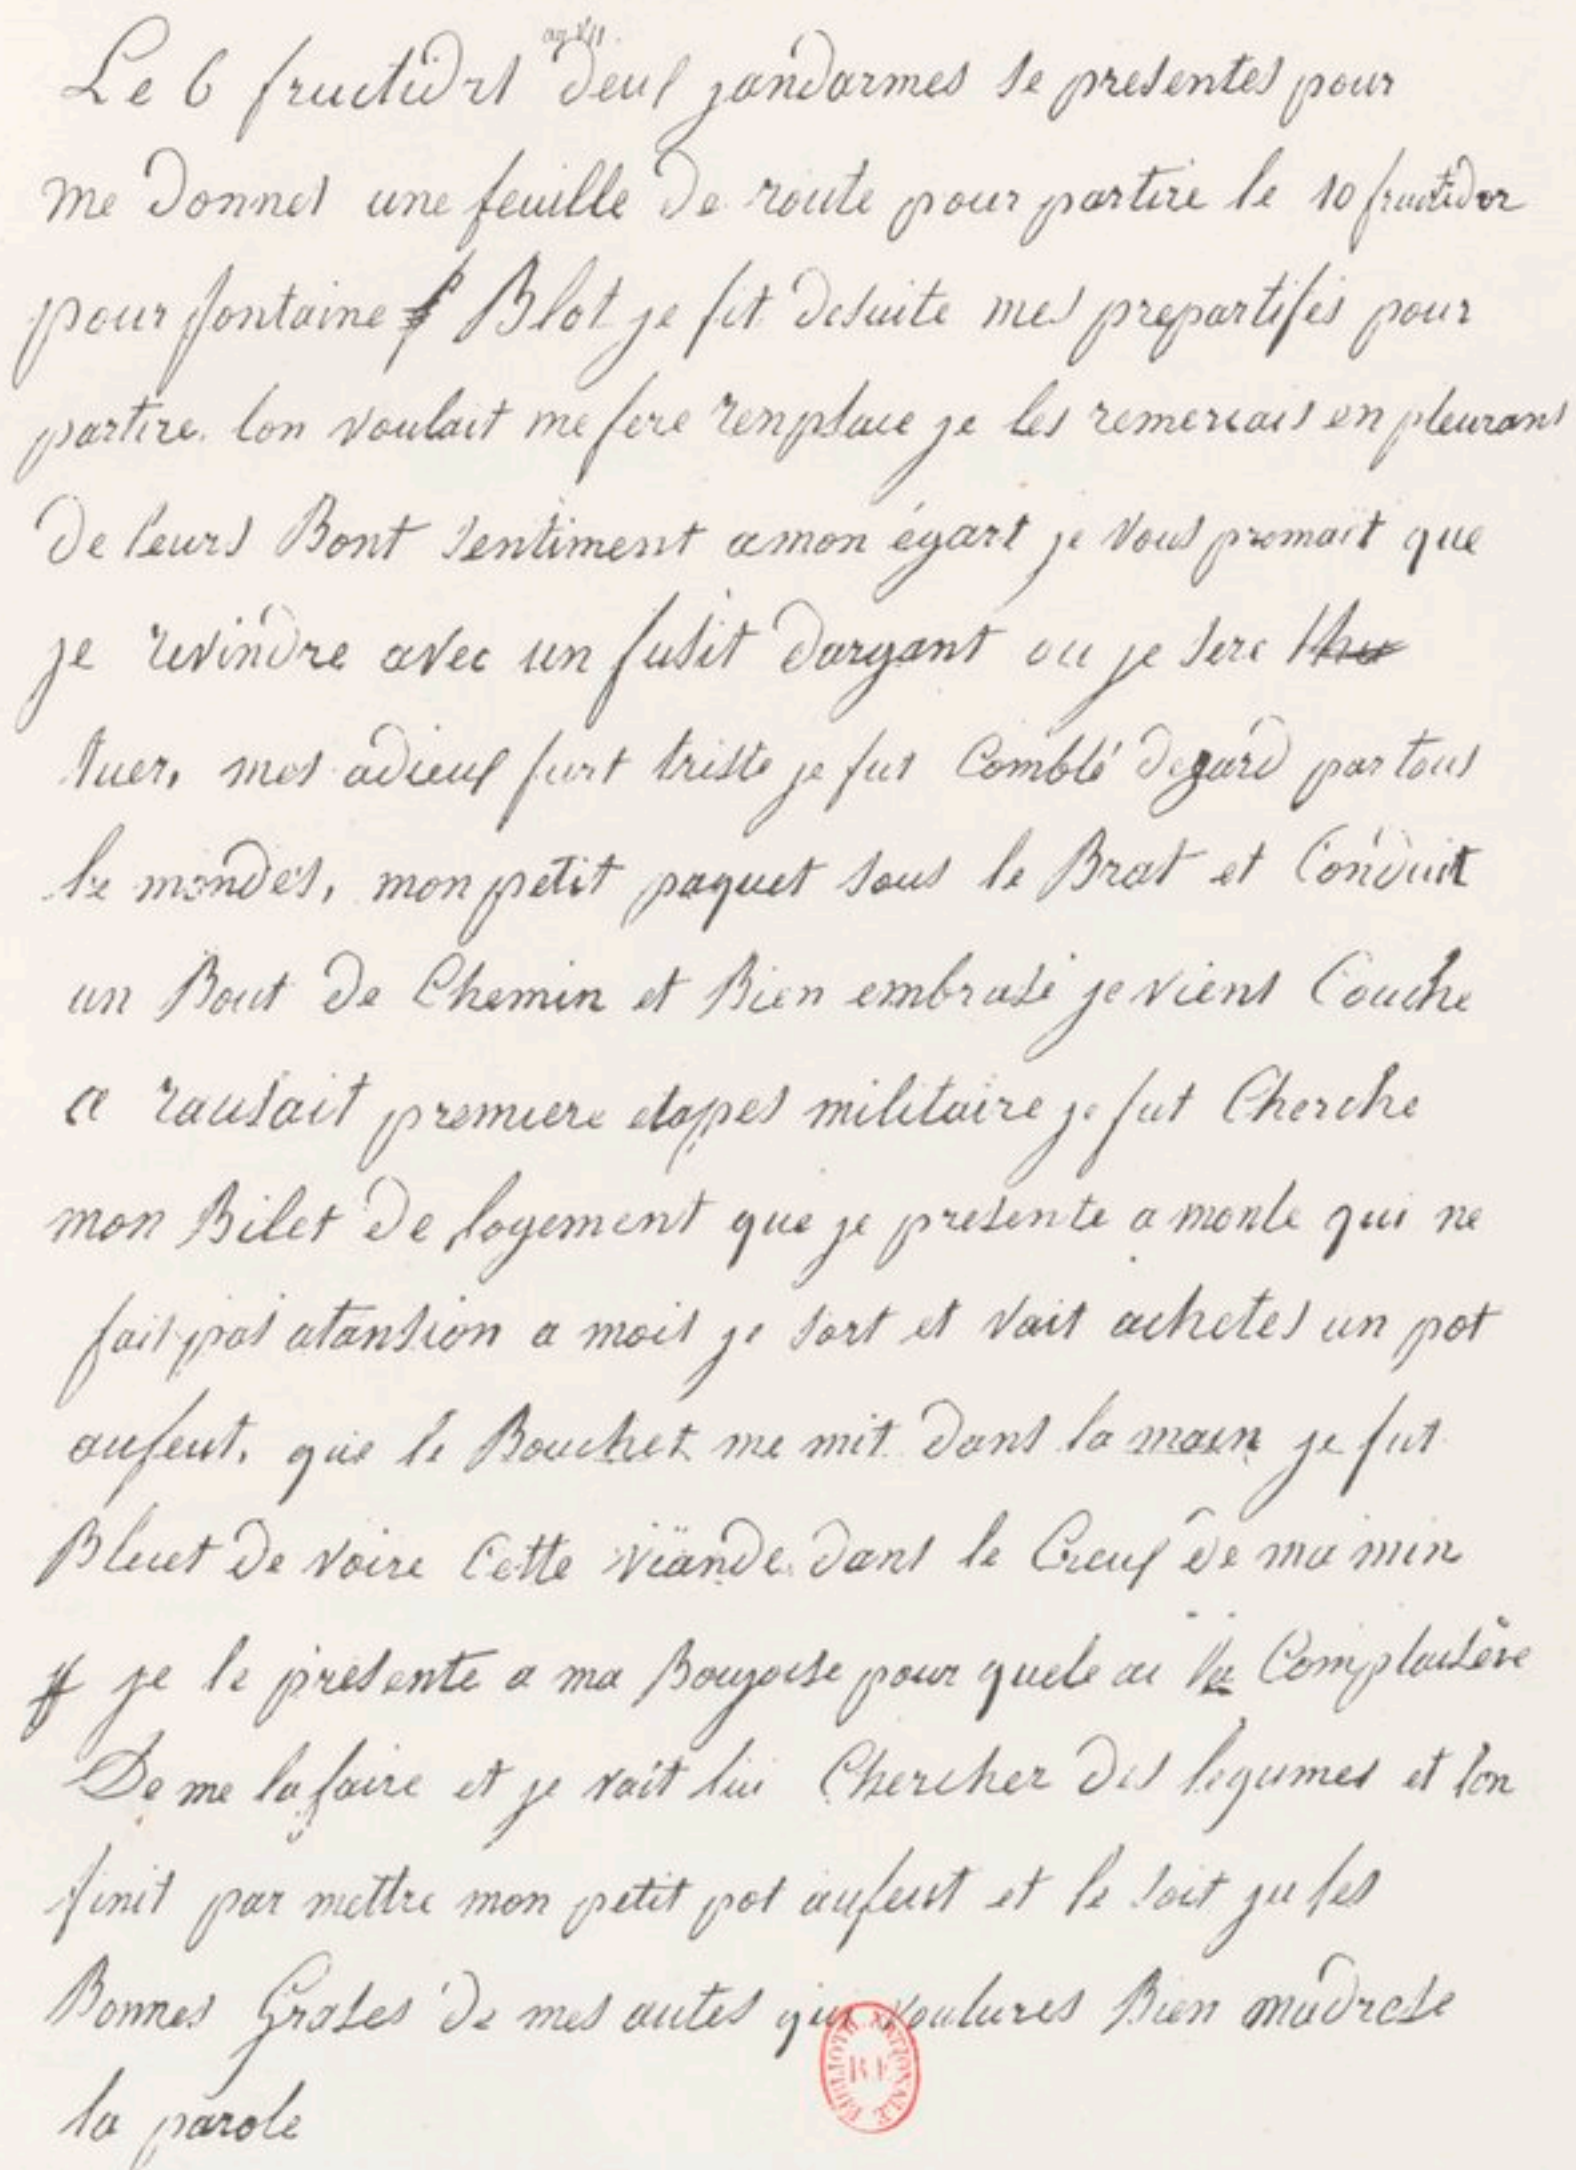 an VII.
Le 6 fructidrt deux gandarmes se presentes pour
me donnes une feuille de route pour partire le 10 fructidor
pour fontaine Blot je fit desuite mes prepartifes pour
partire. lon voulait me fere renplace je les remerciais en pleurans
de leurs Bont sentiment amon égart je vous promait que
je revindre avec un fusit dargant ou je sere
tuer, mes adieux furt triste je fus Comblé degard par tous
le mondes, mon petit paquet sous le Brat et Conduit
un Bout de Chemin et Bien embrasé je viens Couche
a rausait premiere etapes militaire je fut Cherche
mon Bilet de logement que je presente a monle qui ne
fait pas atansion a mois je sort et vait achetes un pot
aufeut. que le Boucher me mit dans la maen je fut
Bleuet de voire Cette viande dans le Creux de ma min
je le presente a ma Bougoise pour quele ai la Complaisēse
De me la faire et je vait lui Chercher des legumes et lon
finit par mettre mon petit pot aufeut et le soit ju les
Bonnes Grases de mes autes qui voulures Bien madrese
la parole
BIBLIOTH NATIONALE